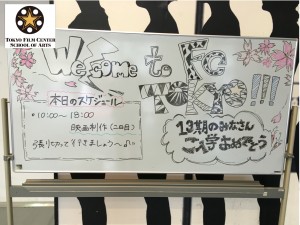 TOKYO FILM CENTER
SCHOOL OF ARTS
Welcome to FC
TOKYO!!!
本日のスケジュール
・10:00〜18:00
映画制作(二日目)
張り切って行きましょう〜♪
13期のみなさん
ご入学おめでとう